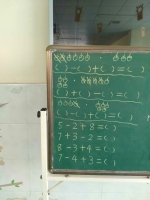 ( )-( )+( )=( )
( )+( )-( )=( )
( )-( )+( )=( )
5-2+8=( )
7+3-2=( )
8-3+4=( )
7-4+3=( )